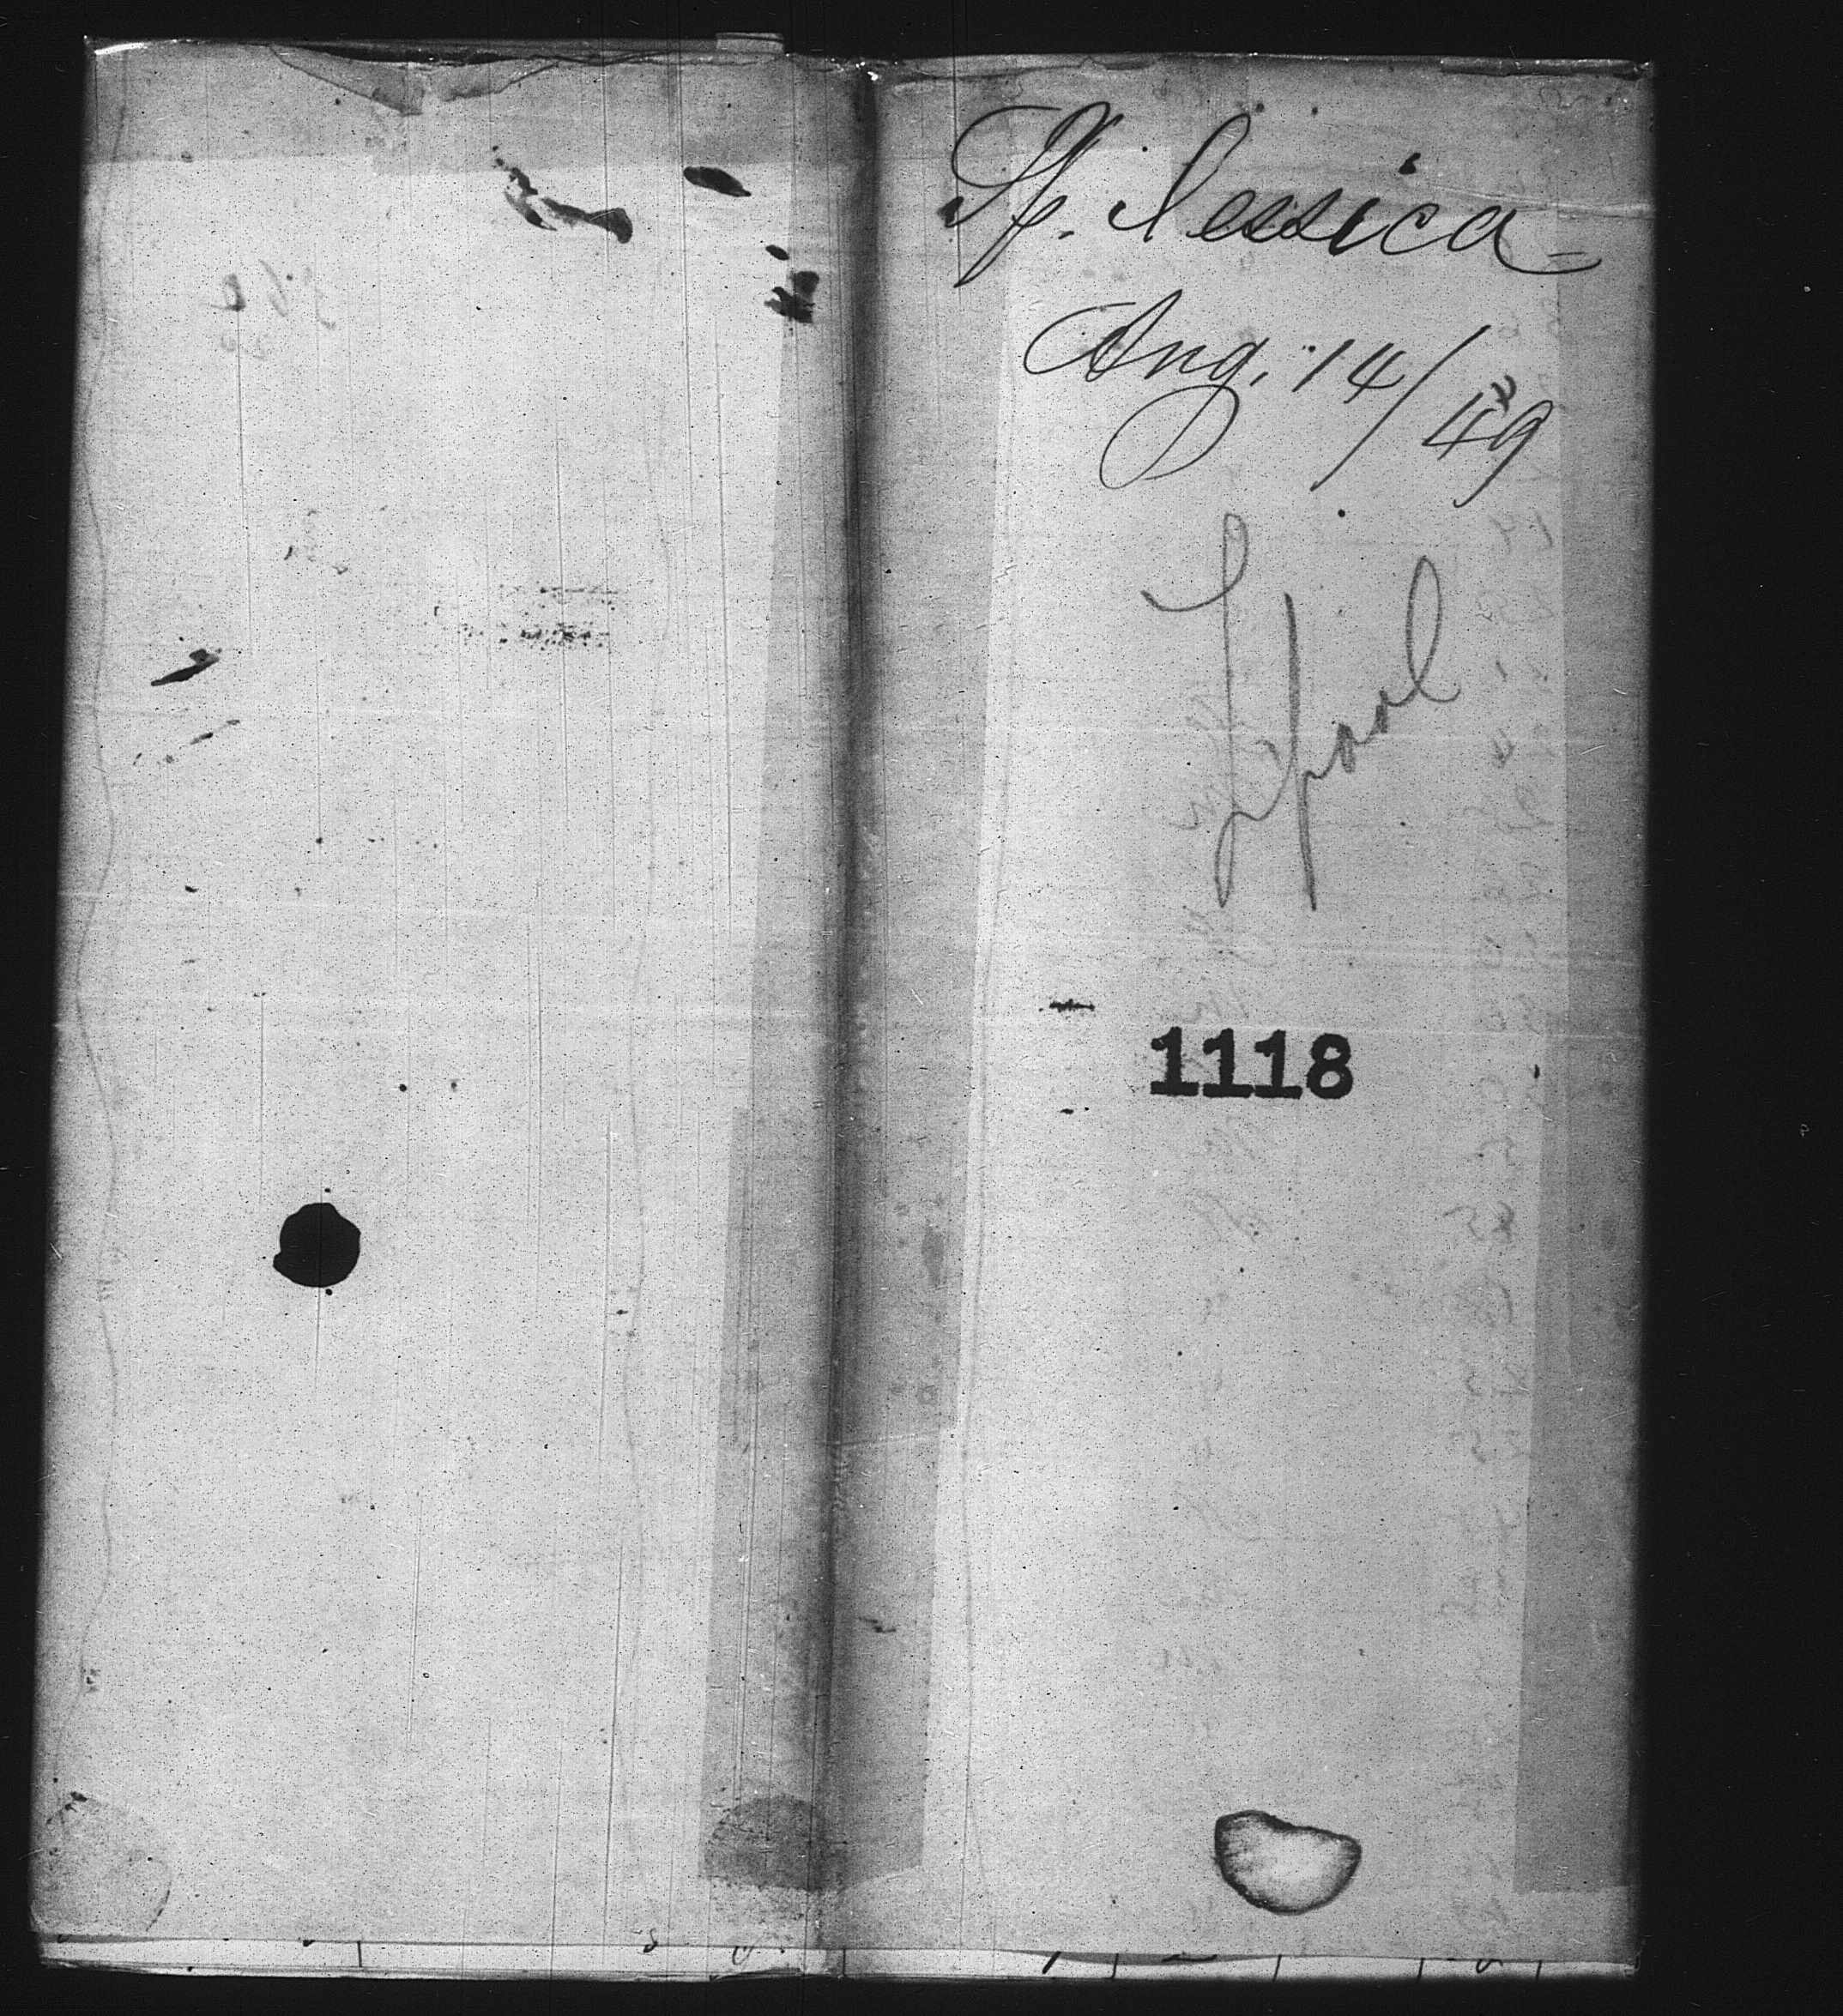 Sp. Jessica
Aug. 14/49
Lpool
1118